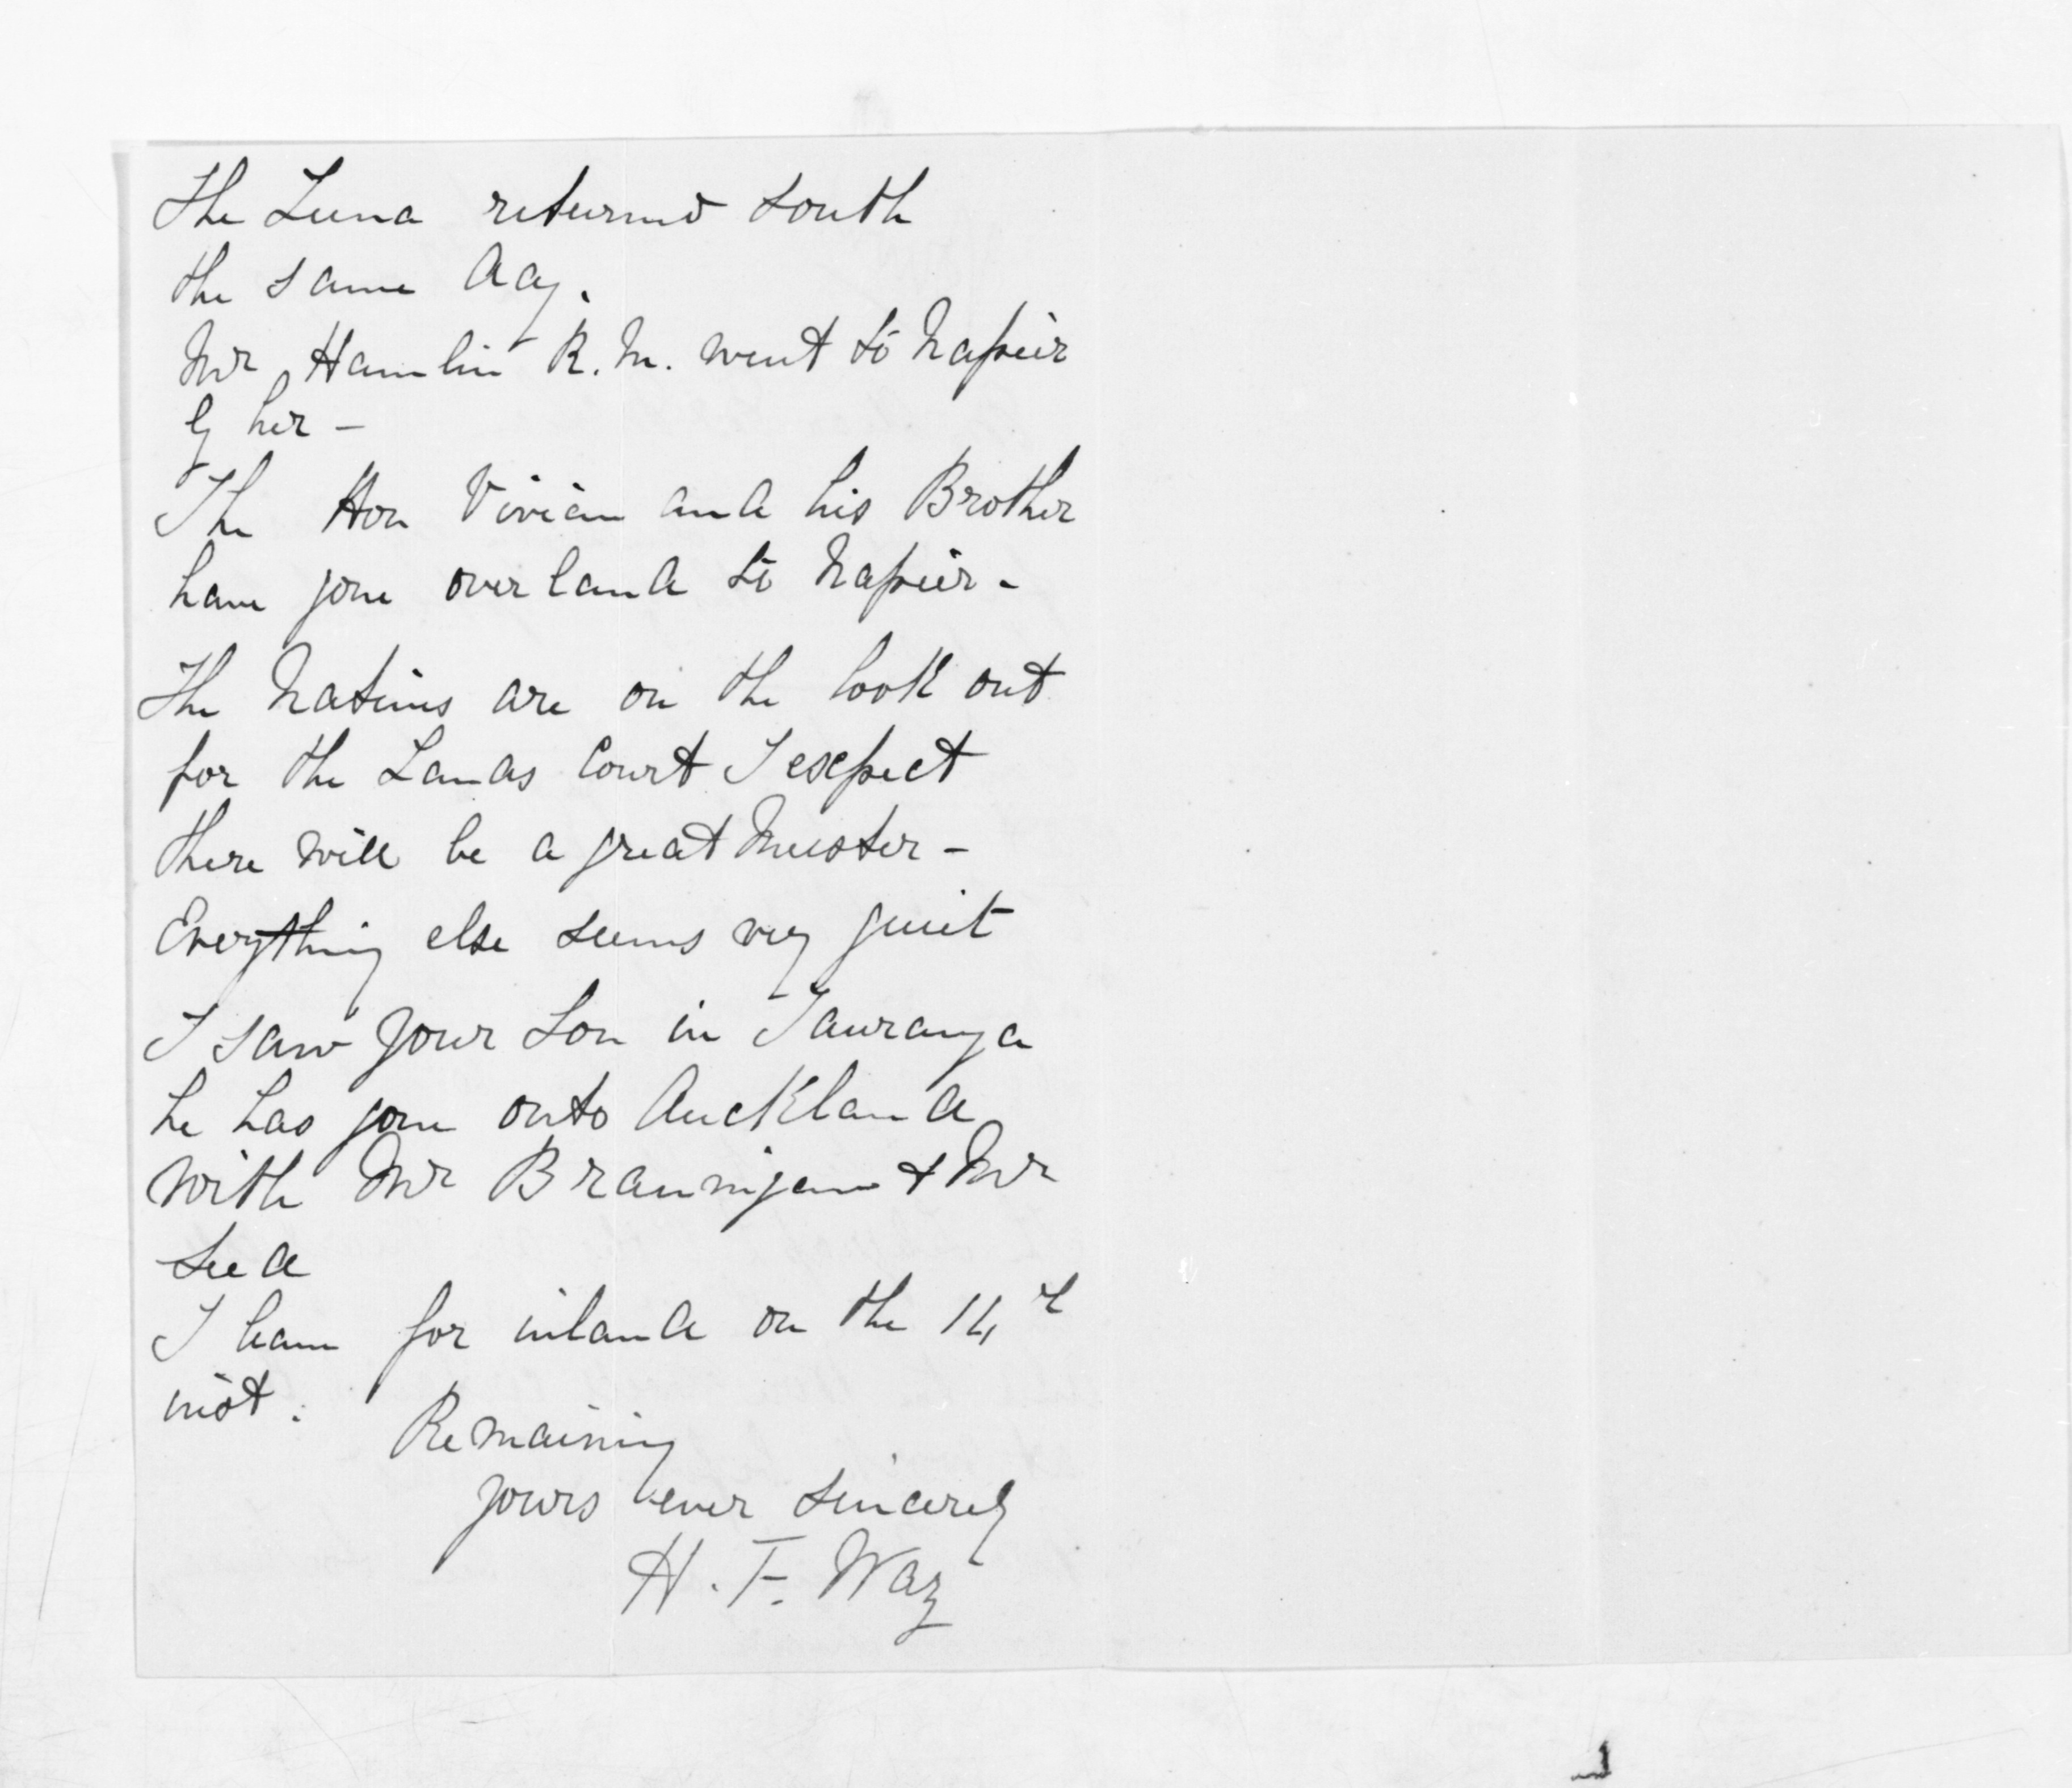 The Luna returned South
the same day.
Mr Hamlin R.M. went to Napier
by her –
The Hon Vivian and his Brother
have gone overland to Napier –
The Natives are on the look out
for the Lands Court I expect
there will be a great Muster –
Everything else seems very quiet
I saw your Son in Tauranga
he has gone onto Auckland
with Mr Brannigan & Mr
Seed
I leave for inland on the 14th
inst.
Remaining
yours ever sincerely
H. F. Way